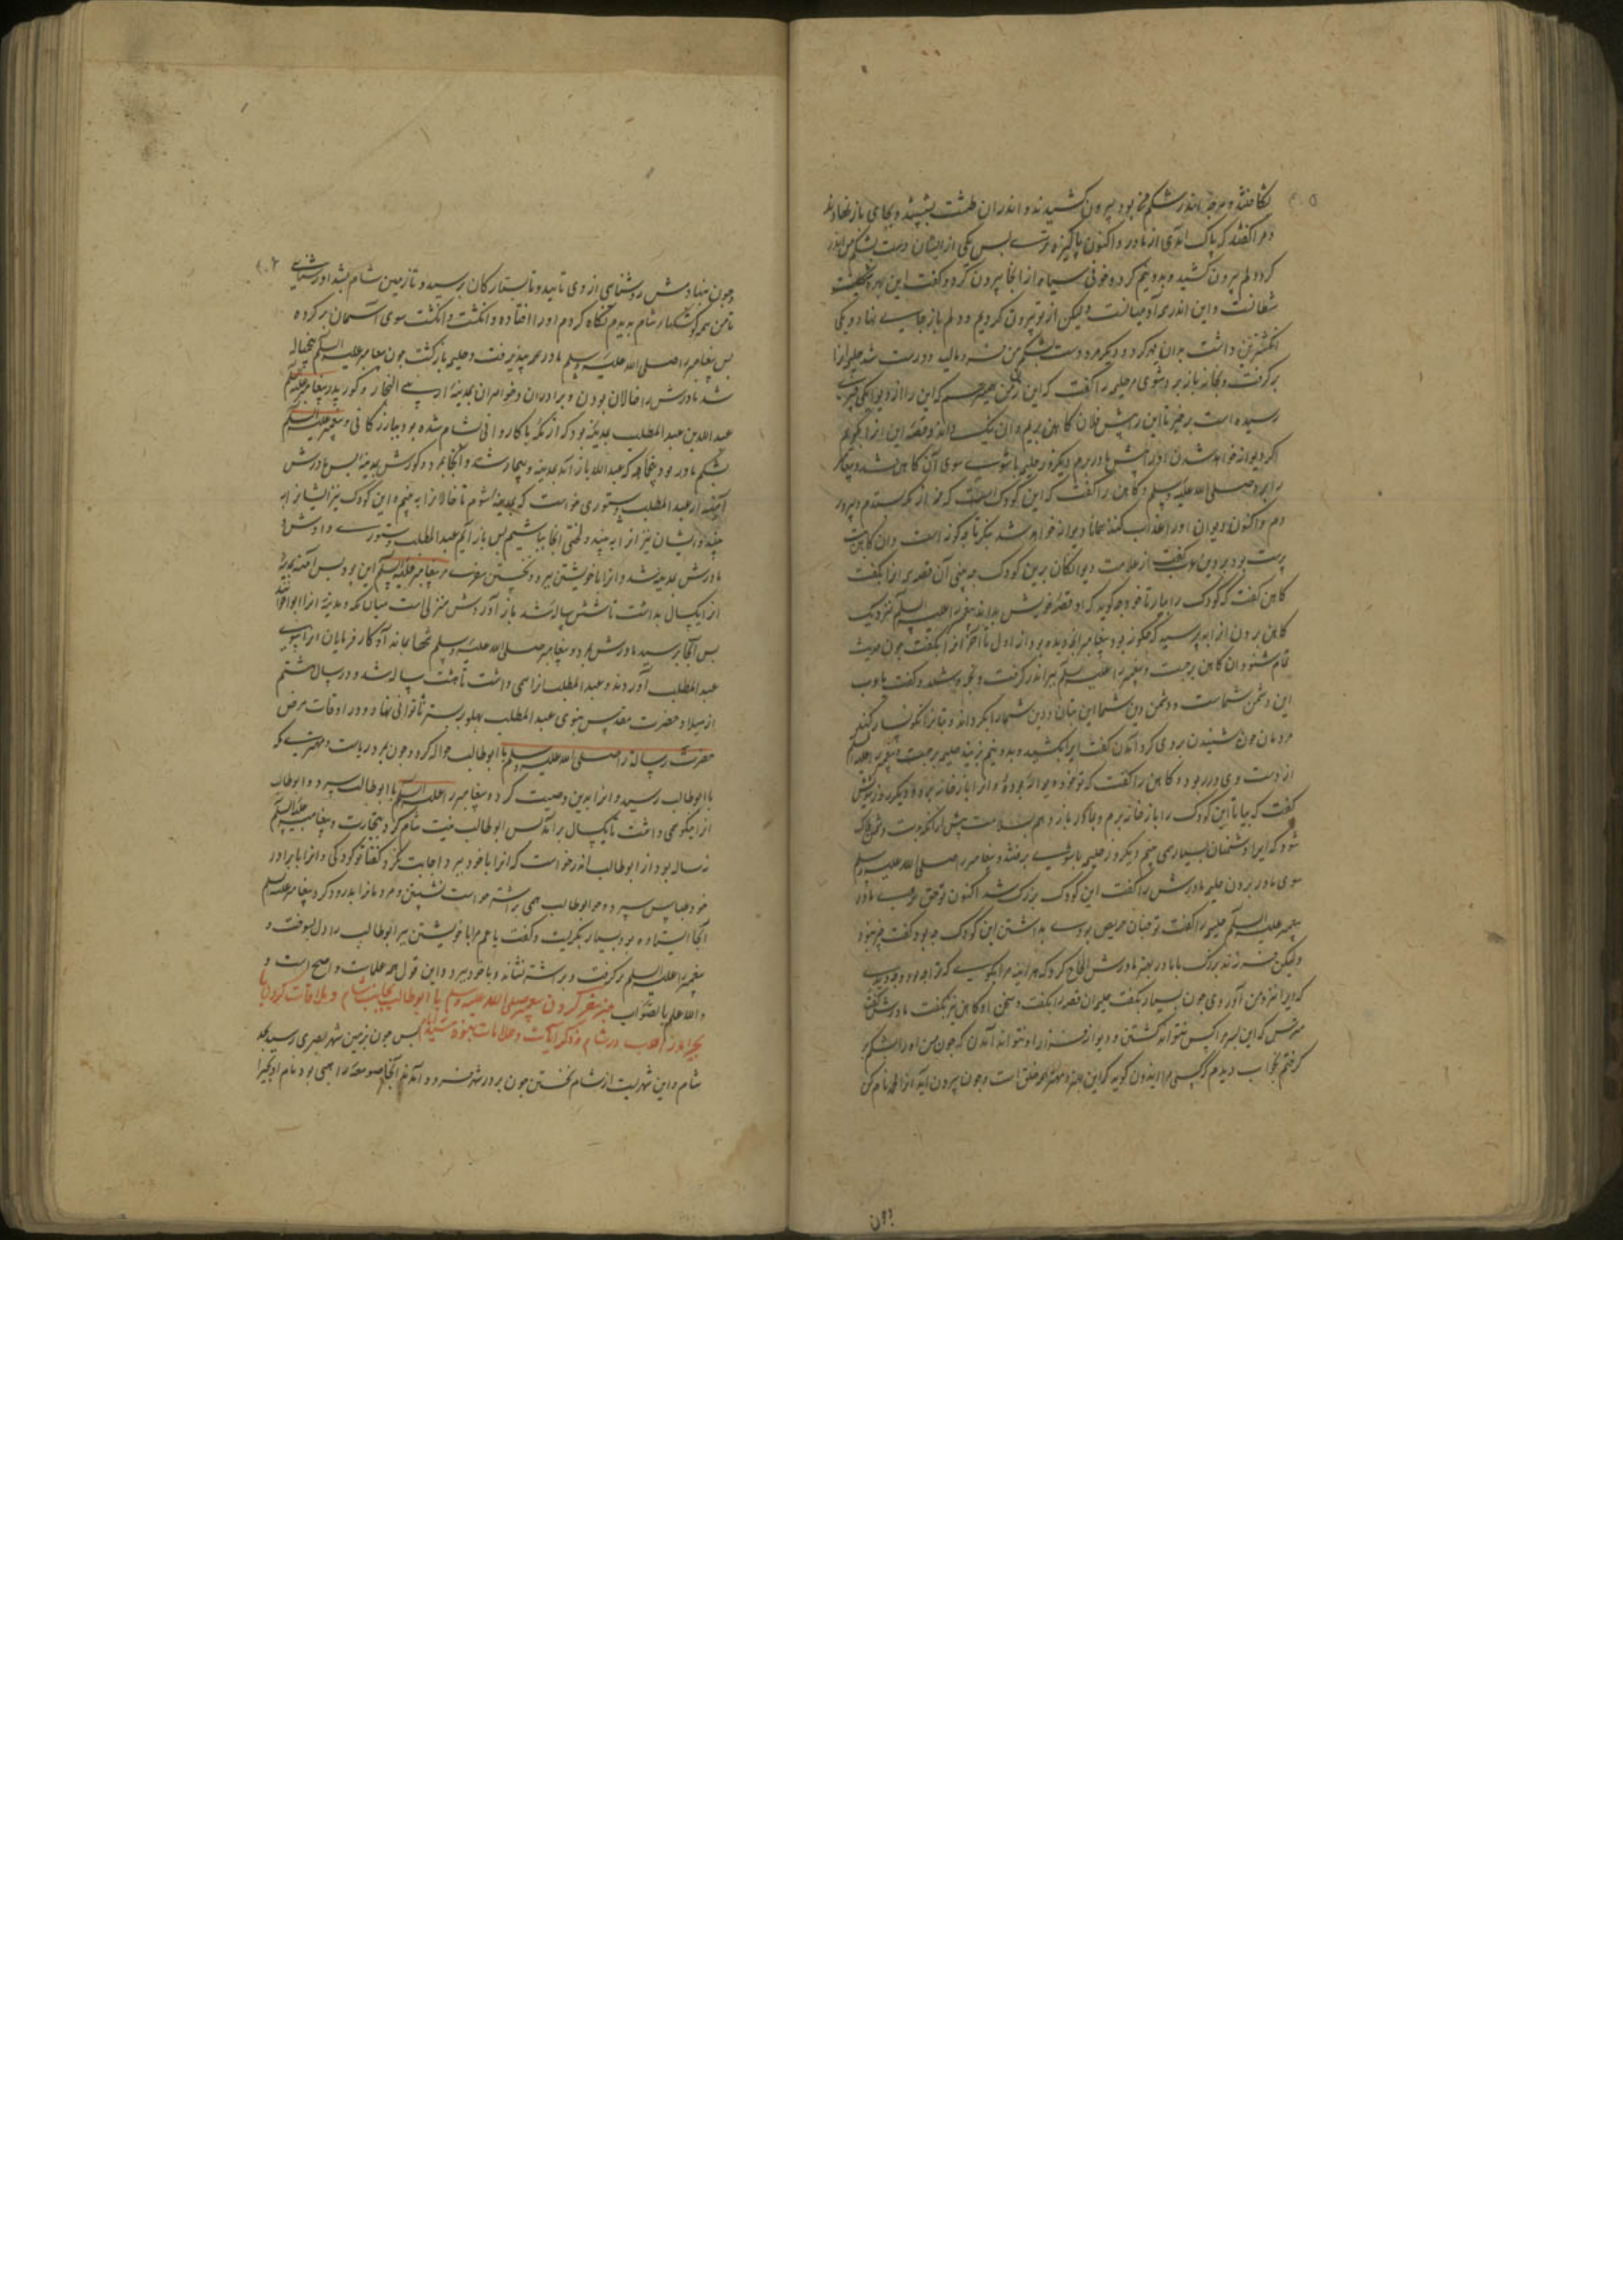 بشکافتند و هرچه اندر شکم من بود بیرون کشیدند و اندران طشت بشستند و بجای باز نهادند
و مرا گفتند که پاک آمدی از مادر و اکنون پاکیزه تر شدی پس یکی از ایشان دست بشکم من اندر
کرد و دلم بیرون کشید و بدو نیم کرد و خونی سیاه از آنجا بیرون کرد و گفت این بهره
شیطانست و این اندر همه آدمیانست ولیکن از تو بیرون کردیم و دلم باز جای نهاد و یکی
انگشترین داشت بدان مهر کرد و دیگر مرد دست بشکم من فرو مالید و درست شد حلیمه او را
برگرفت و بخانه باز برد شوی مر حلیمه را گفت که این
رسیده است برخیز تا این را پیش فلان کاهن بریم و آن نیک داند و قصه این او را بگویم
اگر دیوانه خواهد شدن او را پیش مادر بریم دیگر روز حلیمه با شوی سوی آن کاهن شد و پیغامبر
را ببرد صلی الله علیه وسلم و کاهن را گفت که این کودک است که من از مکه بستدم و بپرور
دم و اکنون دیوان او را عذاب کنند همانا دیوانه خواهد شد بنگر تا چگونه است و آن کاهن بت
پرست بود از علامت دیوانگان برین کودک چه بینی آن قصه او را بگفت
کاهن گفت که کودک را بیار تا خود چه گوید که او قصه خویش بداند پیغمبر را علیه السلم نزدیک
کاهن بردن او را بپرسید که چگونه بود پیغامبر آنچه دیده بود از اول تا آخر او را بگفت چون حدیث
تمام شنود آن کاهن برجست و پیغمبر را علیه السلم ببر اندر گرفت و گفت یا عرب
این دشمن شماست و دشمن دین شما این بتان و دین شما را بگرداند و بتانرا نگونسار کند
مردمان چون شنیدن روی گرد آمدن گفت این را بکشید و بدو نیم بزنید حلیمه برجست و پیغمبر را علیه السلم
از دست وی در ربود و کاهن را گفت که تو خود دیوانه بوده و او را باز خانه برد و دیگر روز شویش
گفت که بیا تا این کودک را باز خانه بریم و بمادر باز دهم بسلامت پیش از آنکه بدست دشمن هلاک
شود که این را دشمنان بسیار همی بینم دیگر روز حلیمه با شوی برفتند و پیغامبر را صلی الله علیه وسلم
سوی مادر بردن حلیمه مادرش را گفت این کودک بزرگ شد اکنون تو حق تری مادر
پیغمبر علیه السلم حلیمه را گفت تو چنان حریص بودی بداشتن این کودک چه بود گفت چیز نبود
ولیکن فرزند بزرگ با مادر بهتر مادرش الحاح کرد که هر آینه مرا بگوی که ترا چه بود
که ویرا نزد من آوردی چون بسیار بگفت حلیمه آن قصه را بگفت و سخن آن کاهن نیز بگفت مادرش گفت
مترس که این پسر را کس نتواند کشتن و دیو از فرزند او نتواند آمدن که چون من او را بشکم بر
گرفتم بخواب دیدم که کسی مرا ایدون گوید که این مهتر همه خلق است و چون بیرون آید او را محمد نام کن
چون
و چون بنهادمش روشنایی از وی تابید و تا بستارگان برسید و تا زمین شام بشد و از روشنایی
تا من همه کوشکهای شام بدیدم نگاه کردم او را افتاده و انگشت سوی آسمان بر کرده
پس پیغامبر را صلی الله علیه وسلم مادر بپذیرفت و حلیمه بازگشت چون پیغامبر علیه السلم پنجساله
شد مادرش را خالان بودن و برادران و خواهران بمدینه از بنی النجار و گور پدر پیغامبر علیه السلم
عبدالله بن عبدالمطلب بمدینه بود که از مکه با کاروانی بشام شده بود ببازرگانی و پیغمبر علیه السلم
بشکم مادر بود پنجماهه که عبدالله باز آمد بمدینه و بیمار شد و آنجا بمرد و گورش بمدینه پس مادرش
آمنه از عبدالمطلب دستوری خواست که بمدینه شوم تا خالانرا به بینم و این کودک نیز ایشانرا به
بیند و ایشان نیز او را به بیند و لختی آنجا بباشیم پس باز آیم عبدالمطلب دستوری دادش
مادرش بمدینه شد و او را با خویشتن ببرد و نخستین سفر پیغامبر علیه السلم این بود پس آمنه بمدینه
او را یکسال بداشت تا شش ساله شد باز آوردش منزلی است میان مکه و مدینه او را ابواء خوانند
پس آنجا برسید مادرش بمرد و پیغامبر صلی الله علیه وسلم تنها بماند آن کارفرمایان او را سوی
عبدالمطلب آوردند و عبدالمطلب او را همی داشت تا هشت ساله شد و در سال هشتم
از میلاد حضرت مقدس نبوی عبدالمطلب پهلو بر بستر ناتوانی نهاد و در اوقات مرض
حضرت رسالت را صلی الله علیه وسلم با ابوطالب حواله کرد و چون بمرد ریاست و مهتری مکه
با ابوطالب رسید و او را بدین وصیت کرد و پیغامبر را علیه السلم با ابوطالب سپرد و ابوطالب
او را نیکو همی داشت تا یکسال برآمد پس ابوطالب نیت شام کرد بتجارت و پیغامبر علیه السلم
نه ساله بود از ابوطالب اندر خواست که او را با خود ببرد اجابت نکرد گفتا تو کودکی و او را با برادر
خود عباس سپرد و چون ابوطالب همی بر اشتر خواست نشستن و مردمانرا بدرود کرد پیغامبر علیه السلم
آنجا ایستاده بود بسیار بگریست و گفت یا عم مرا با خویشتن ببر ابوطالب را دل بسوخت و
پیغمبر را علیه السلم برگرفت و بر اشتر نشاند و با خود ببرد و این قول همه علماست و اصح است و
والله اعلم بالصواب خبر سفر کردن پیغمبر صلی الله علیه وسلم با ابوطالب بجانب شام و ملاقات کردن با
بحیرا در شام و ذکر آیات و علامات نبوة پس چون بزمین شهر بصری رسید بحد
شام و این شهریست از شام نخستین چون بر در شهر فرود آمدند آنجا صومعه راهبی بود نام او بحیرا